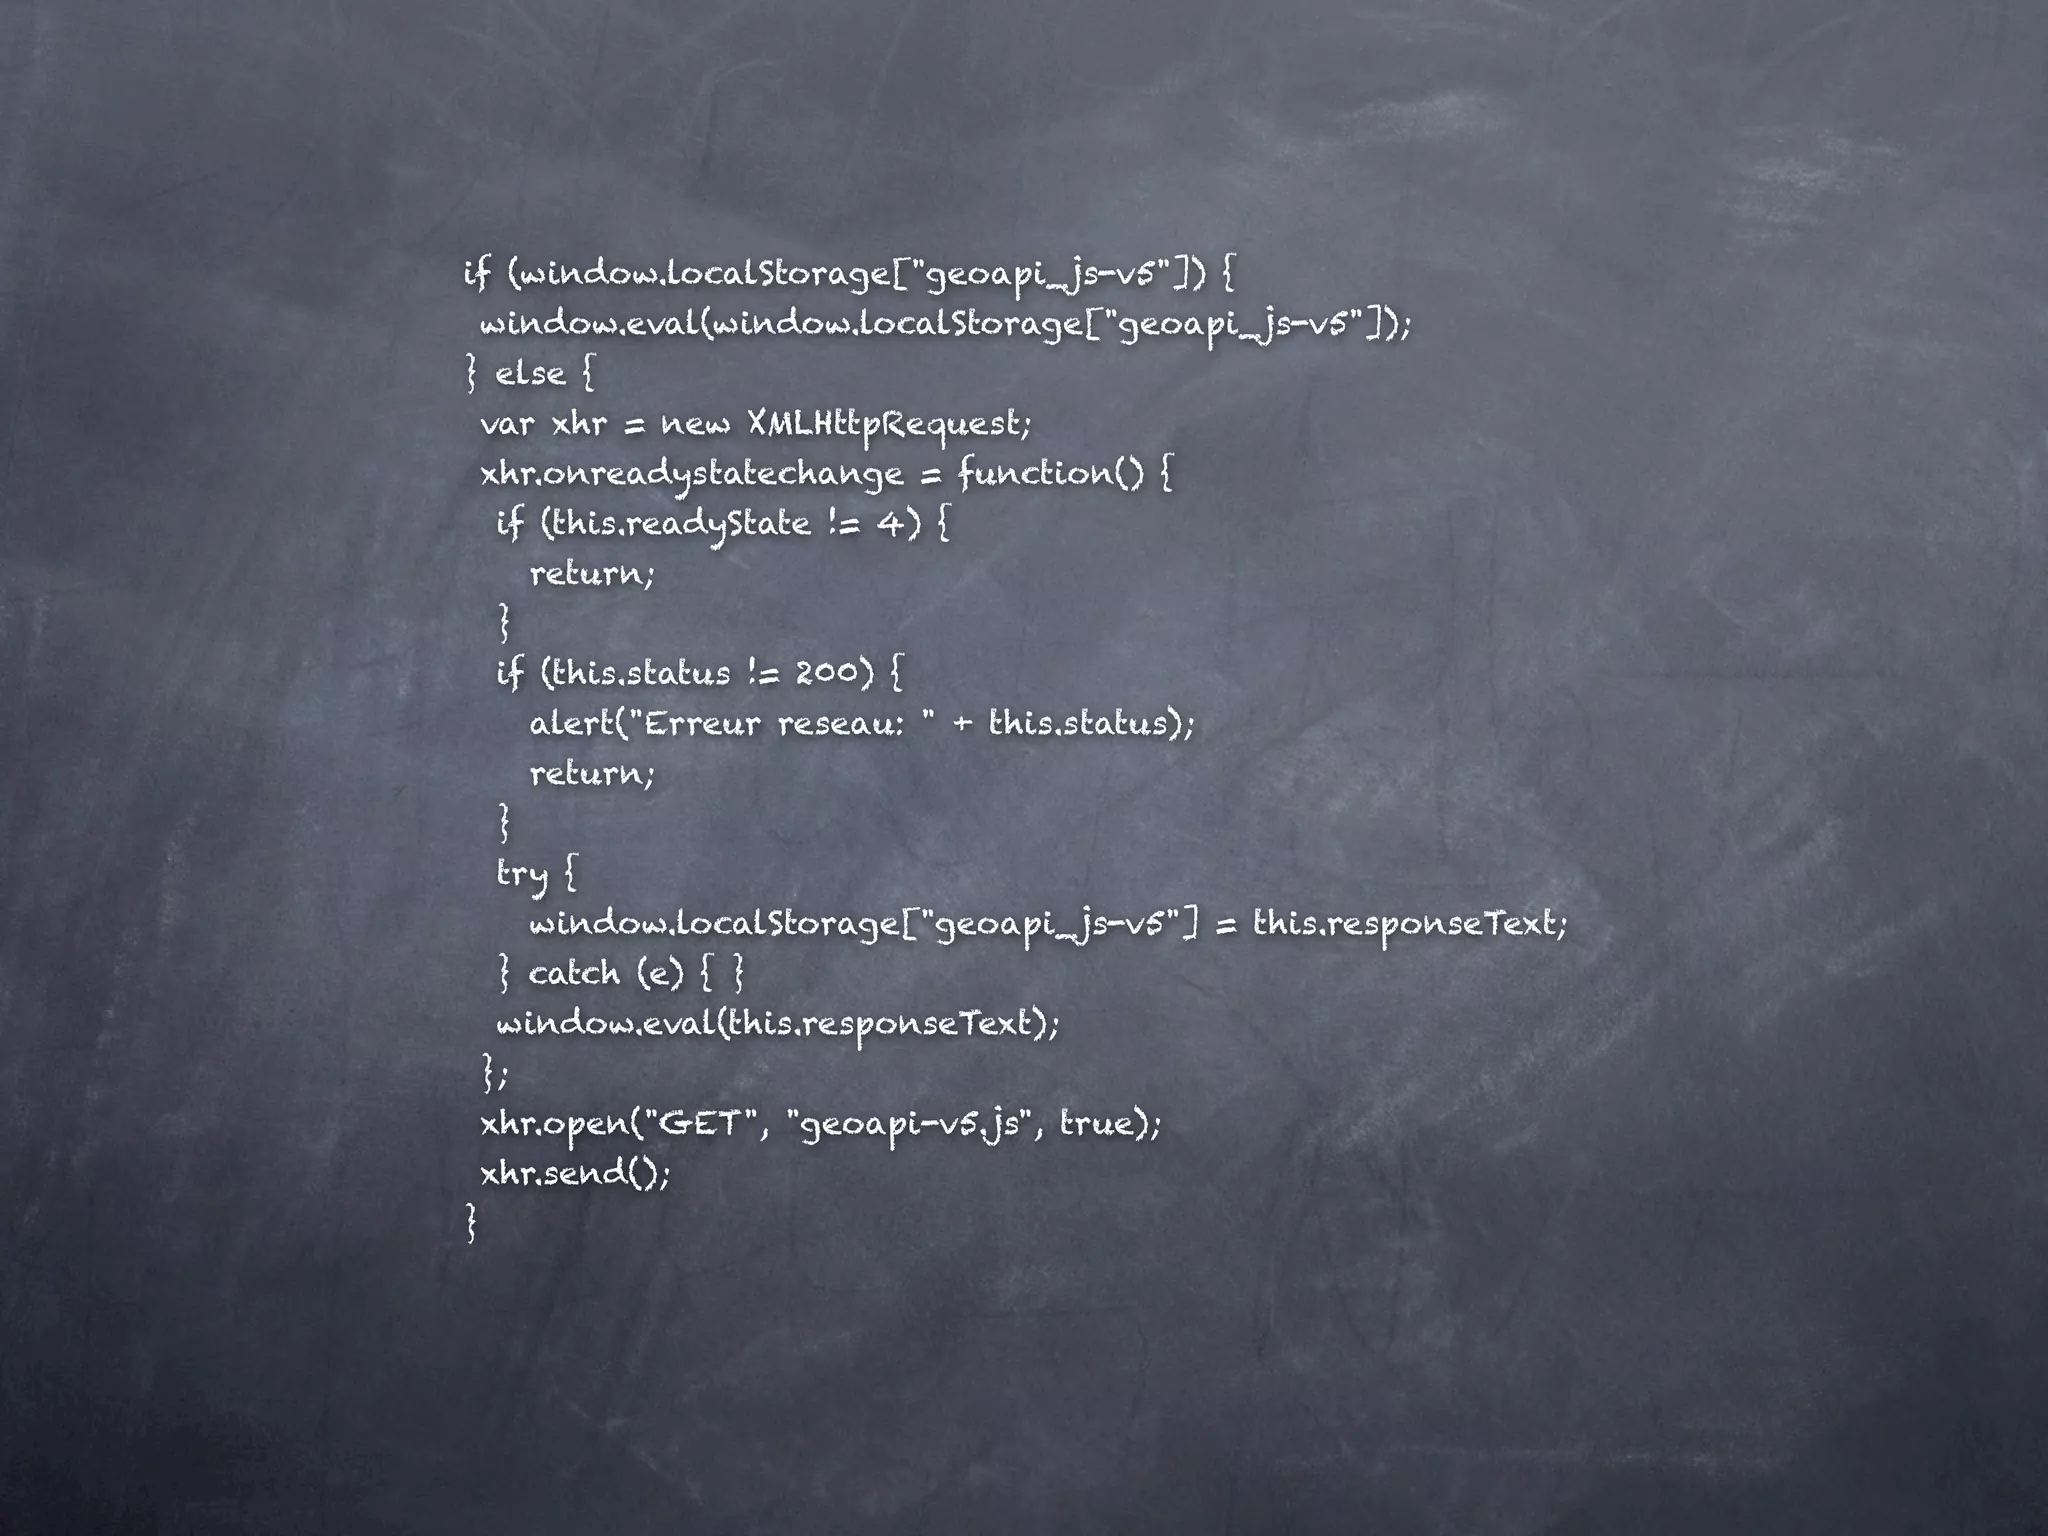 if (window.localStorage["geoapi_js-v5"]) {
window.eval(window.localStorage["geoapi_js-v5"]);
} else {
var xhr = new XMLHttpRequest;
xhr.onreadystatechange = function() {
if (this.readyState != 4) {
return;
}
if (this.status != 200) {
alert("Erreur reseau: " + this.status);
return;
}
try {
window.localStorage["geoapi_js-v5"] = this.responseText;
} catch (e) { }
window.eval(this.responseText);
};
xhr.open("GET", "geoapi-v5.js", true);
xhr.send();
}